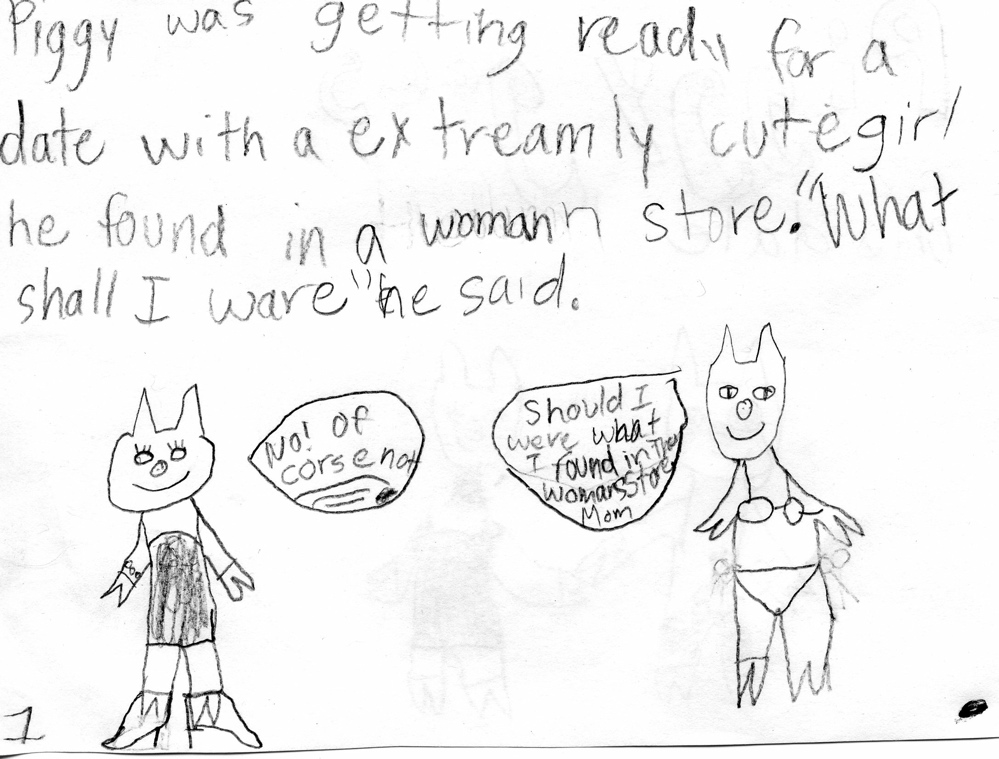 Piggy was getting ready for a
date with a extreamly cute girl
he found in a womann store. "What
shall I ware" he said.
No! Of
corse not
Should I
were what
I found in The
womansStore
Mom
1